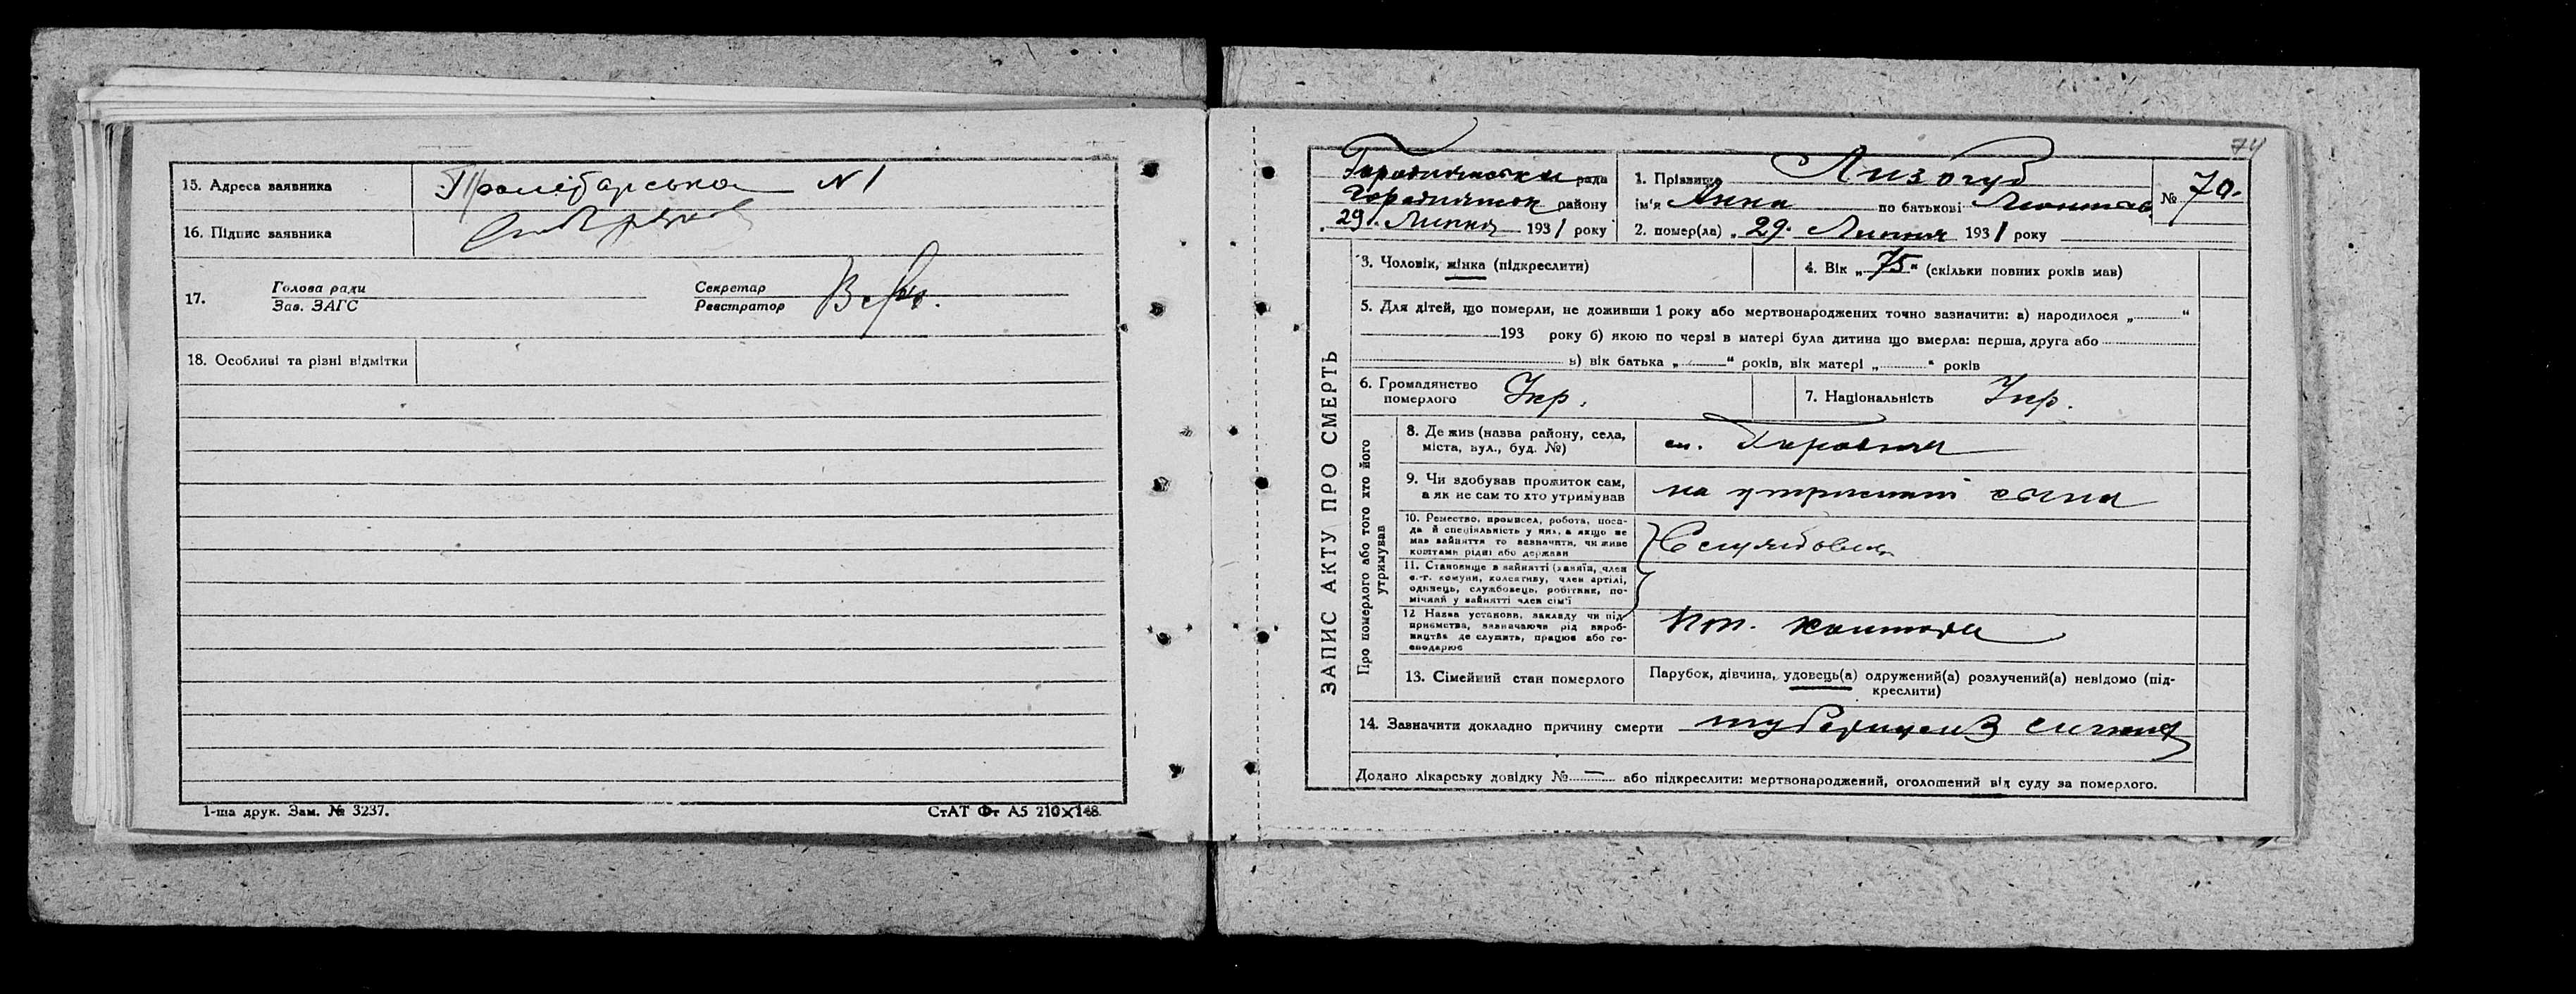 15. Адреса заявника Пролетарська N 1
16. Підпис заявника
17. Голова ради Секретар
Зав. ЗАГС Реєстратор
18. Особливі та різні відмітки
1-ша друк. Зам. № 3237. СтАТ Фт А5 210х148.
74
Городнянська рада
Городнянськ району
„29". Липня 1931 року
1. Прізвище Лизогуб
ім'я Анна по батькові
№ 70.
2. помер(ла) „29. Липня 1931 року
ЗАПИС АКТУ ПРО СМЕРТЬ
3. Чоловік, жінка (підкреслити)
4. Вік „75" (скільки повних років мав)
5. Для дітей, що померли, не доживши 1 року або мертвонароджених точно зазначити: а) народилося „ "
193 року б) якою по черзі в матері була дитина що вмерла: перша, друга або
в) вік батька „ " років, вік матері „ " років
6. Громадянство
померлого Укр.
7. Національність Укр.
Про померлого або того хто його
утримував
8. Де жив (назва району, села,
міста, вул., буд. №) м. Городня
9. Чи здобував прожиток сам,
а як не сам то хто утримував на утриманні сина
10. Ремество, промисел, робота, поса-
да й спеціяльність у них, а якщо не
мав зайняття то зазначити, чи живе
коштами рідні або держави
11. Становище в зайнятті (хазяїн, член
с.-г. комуни, колективу, член артілі,
одинець, службовець, робітник, по-
мічний у зайнятті член сім'ї
12 Назва установи, закладу чи під-
приємства, зазначаючи рід вироб-
ництва де служить, працює або го-
сподарює
контора
13. Сімейний стан померлого Парубок, дівчина, удовець(а) одружений(а) розлучений(а) невідомо (під-
креслити)
14. Зазначити докладно причину смерти туберкульоз
Додано лікарську довідку № — або підкреслити: мертвонароджений, оголошений від суду за померлого.